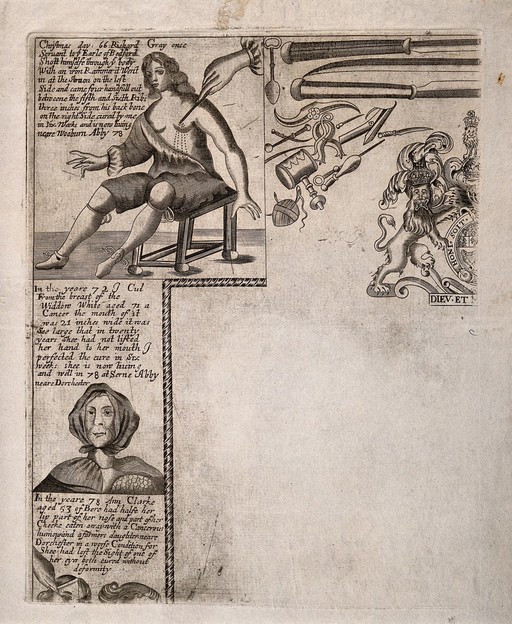 Christmas day 66 Richard Gray once
Servant to ye Earle of Bedford
Shott himselfe through ye body
With an iron Rammer it Went
in at the on the left
Side and came four handfull out
betweene the fifth and Sixth Rib
three inches from his back bone
on the right Side cured by me
in Six Weeks and is now living
neare Wooburn Abby 78
HONI SOIT
DIEV·ET
In the yeare 72 I Cut
From the breast of the
Widdow White aged 71 a
Cancer the mouth of it
was 21 inches wide it was
Soe large that in twenty
years Shee had not lifted
her hand to her mouth I
perfected the cure in Six
weeks shee is now living
and well in 78 at Serne Abby
neare Dorchester
In the yeare 78 Ann Clarke
aged 53 of Bere had halfe her
lip part of her nose and part of her
Cheeke eaten away with a Cancerous
humour and a farmers daughter neare
Dorchester in a worse Condition for
Shee had lost the Sight of one of
her eys both cured without
deformity